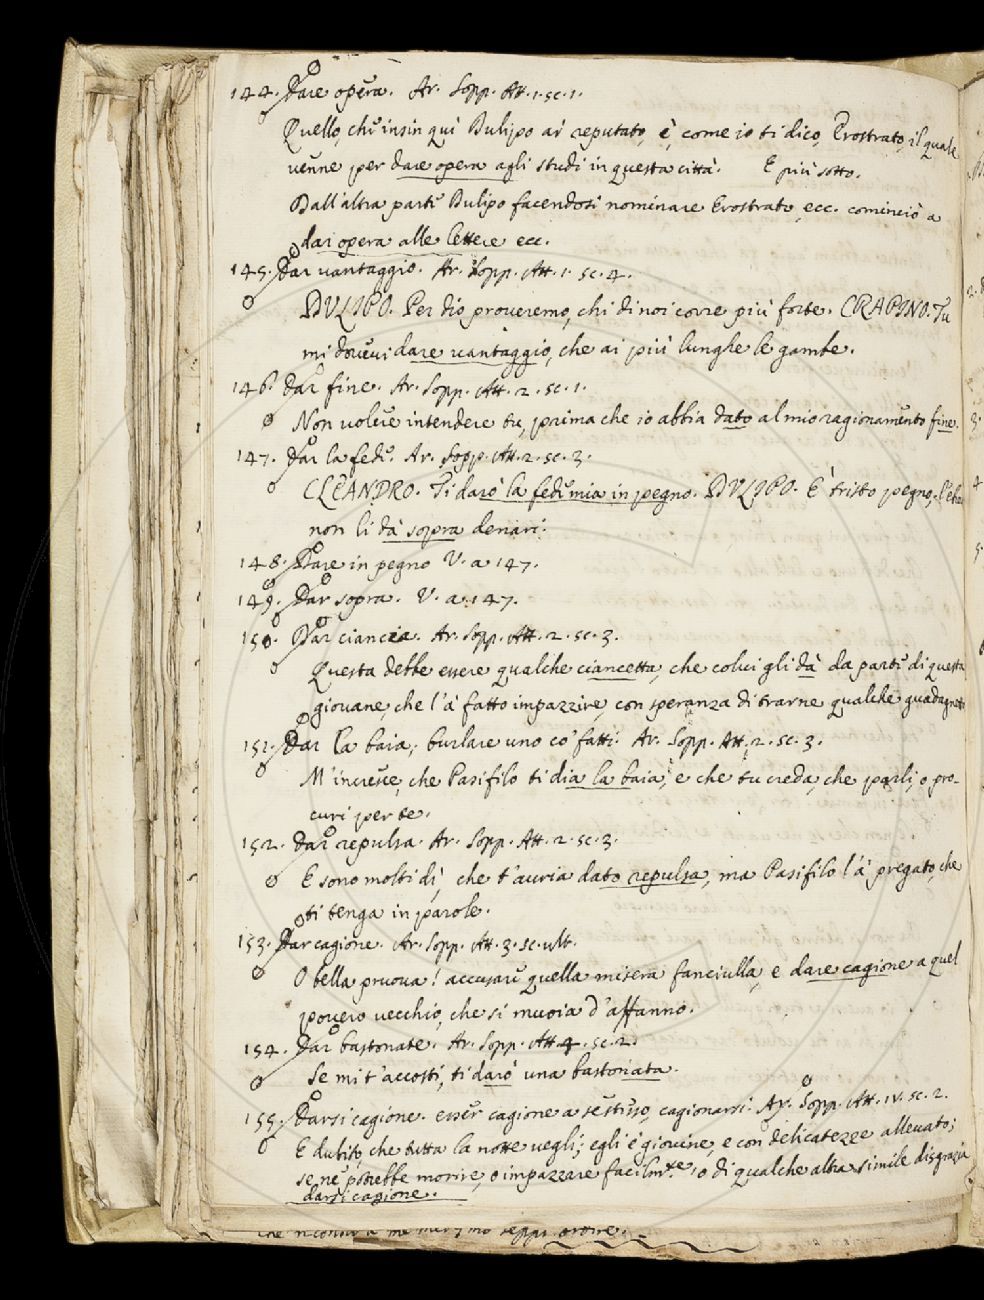 144. Dare opera. Ar. Sopp. Att. 1. sc. 1.
Quello, che insin qui Dulipo ai reputato, è, come io ti dico, Erostrato, il quale
venne per dare opera agli studi in questa città. E più sotto.
Dall'altra parte Dulipo facendosi nominare Erostrato, ecc. cominciò a
dar opera alle lettere ecc.
145. Dar vantaggio. Ar. Sopp. Att. 1. sc. 4.
DULIPO. Per dio proveremo, chi di noi corre più forte. CRAPINO. Tu
mi dovevi dare vantaggio, che ai più lunghe le gambe.
146. Dar fine. Ar. Sopp. Att. 2. sc. 1.
Non volere intendere tu, prima che io abbia dato al mio ragionamento fine.
147. Dar la fede. Ar. Sopp. Att. 2. sc. 3.
CLEANDRO. Ti darò la fede mia in pegno. DULIPO. È tristo pegno,
non li dà sopra denari.
148. Dare in pegno V. a 147.
149. Dar sopra. V. a 147.
150. Dar ciancia. Ar. Sopp. Att. 2. sc. 3.
Questa debbe essere qualche ciancetta, che colui gli dà da parte di questa
giovane, che l'à fatto impazzire, con speranza di trarne qualche guadagnetto
151. Dar la baia, burlare uno co' fatti. Ar. Sopp. Att. 2. sc. 3.
M'incresce, che Pasifilo ti dia la baia, e che tu creda, che parli, o pro-
curi per te.
152. Dar repulsa. Ar. Sopp. Att. 2. sc. 3.
E sono molti dì, che t'avria dato repulsa, ma Pasifilo l'à pregato, che
ti tenga in parole.
153. Dar cagione. Ar. Sopp. Att. 3. sc. ult.
O bella pruova! accusare quella misera fanciulla, e dare cagione a quel
povero vecchio, che si muoia d'affanno.
154. Dar bastonate. Ar. Sopp. Att. 4. sc. 2.
Se mi t'accosti, ti darò una bastonata.
155. Darsi cagione. esser cagione a se stesso, cagionarsi. Ar. Sopp. Att. IV. sc. 2.
E dubito, che tutta la notte vegli; egli è giovine, e con delicatezze allevato;
se ne potrebbe morire, o impazzare facilm.te, o di qualche altra simile disgrazia
darsi cagione.